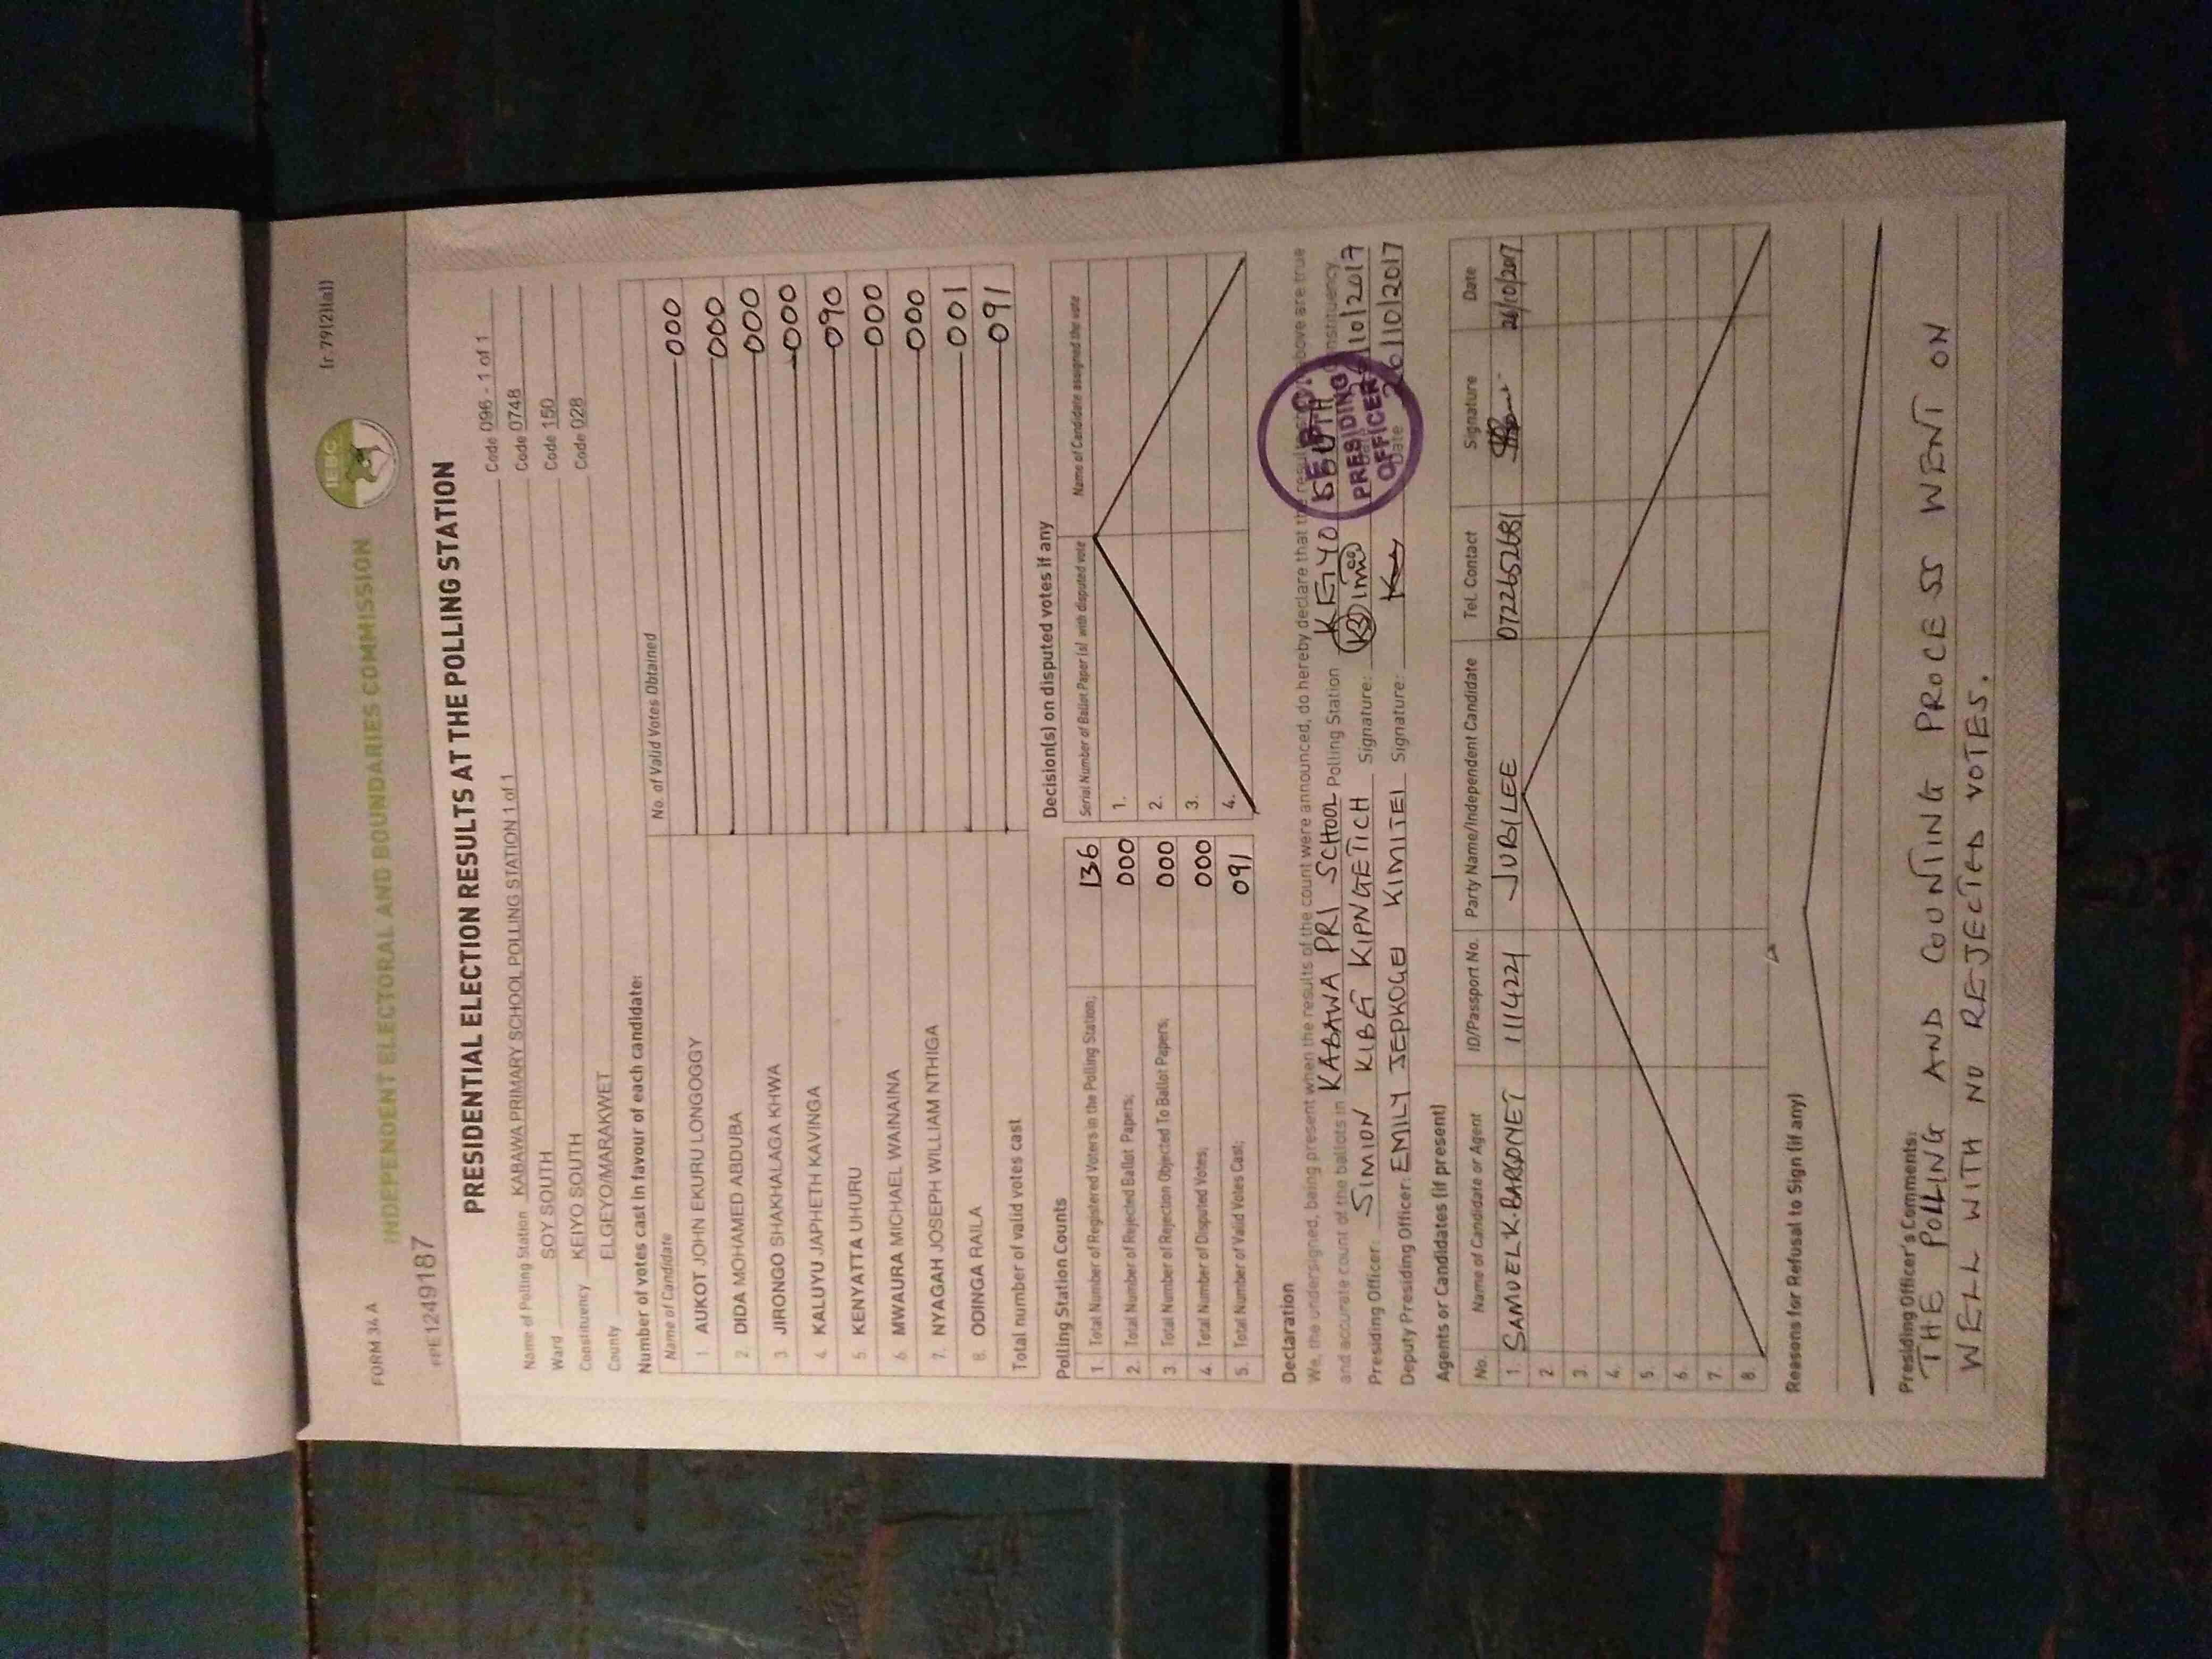 FORM 34 A
(r. 79(2)(a))
IEBC
INDEPENDENT ELECTORAL AND BOUNDARIES COMMISSION
PRESIDENTIAL ELECTION RESULTS AT THE POLLING STATION
Name of Polling Station KABAWA PRIMARY SCHOOL POLLING STATION 1 of 1 Code 096 - 1 of 1
Ward SOY SOUTH Code 0748
Constituency KEIYO SOUTH Code 150
County ELGEYO/MARAKWET Code 028
Number of votes cast in favour of each candidate:
Name of Candidate No. of Valid Votes Obtained
1. AUKOT JOHN EKURU LONGOGGY 000
2. DIDA MOHAMED ABDUBA 000
3. JIRONGO SHAKHALAGA KHWA 000
4. KALUYU JAPHETH KAVINGA 000
5. KENYATTA UHURU 090
6. MWAURA MICHAEL WAINAINA 000
7. NYAGAH JOSEPH WILLIAM NTHIGA 000
8. ODINGA RAILA 001
Total number of valid votes cast 091
Polling Station Counts
1. Total Number of Registered Voters in the Polling Station; 136
2. Total Number of Rejected Ballot Papers; 000
3. Total Number of Rejection Objected To Ballot Papers; 000
4. Total Number of Disputed Votes; 000
5. Total Number of Valid Votes Cast; 091
Decision(s) on disputed votes if any
Serial Number of Ballot Paper(s) with disputed vote Name of Candidate assigned the vote
1.
2.
3.
4.
Declaration
We, the undersigned, being present when the results of the count were announced, do hereby declare that the results above are true
and accurate count of the ballots in KABAWA PRI SCHOOL Polling Station KEIYO SOUTH Constituency.
Presiding Officer: SIMION KIBET KIPNGETICH Signature: 10/2017
Deputy Presiding Officer: EMILY JEPKOGEI KIMITEI Signature: Date 26/10/2017
PRESIDING
OFFICER
Agents or Candidates (if present)
No. Name of Candidate or Agent ID/Passport No. Party Name/Independent Candidate Tel. Contact Signature Date
1 SAMUEL K. BARGONET JUBILEE 0722652681 26/10/2017
2
3.
4.
5.
6.
7.
8.
Reasons for Refusal to Sign (if any)
Presiding Officer's Comments:
THE POLLING AND COUNTING PROCESS WENT ON
WELL WITH NO REJECTED VOTES.